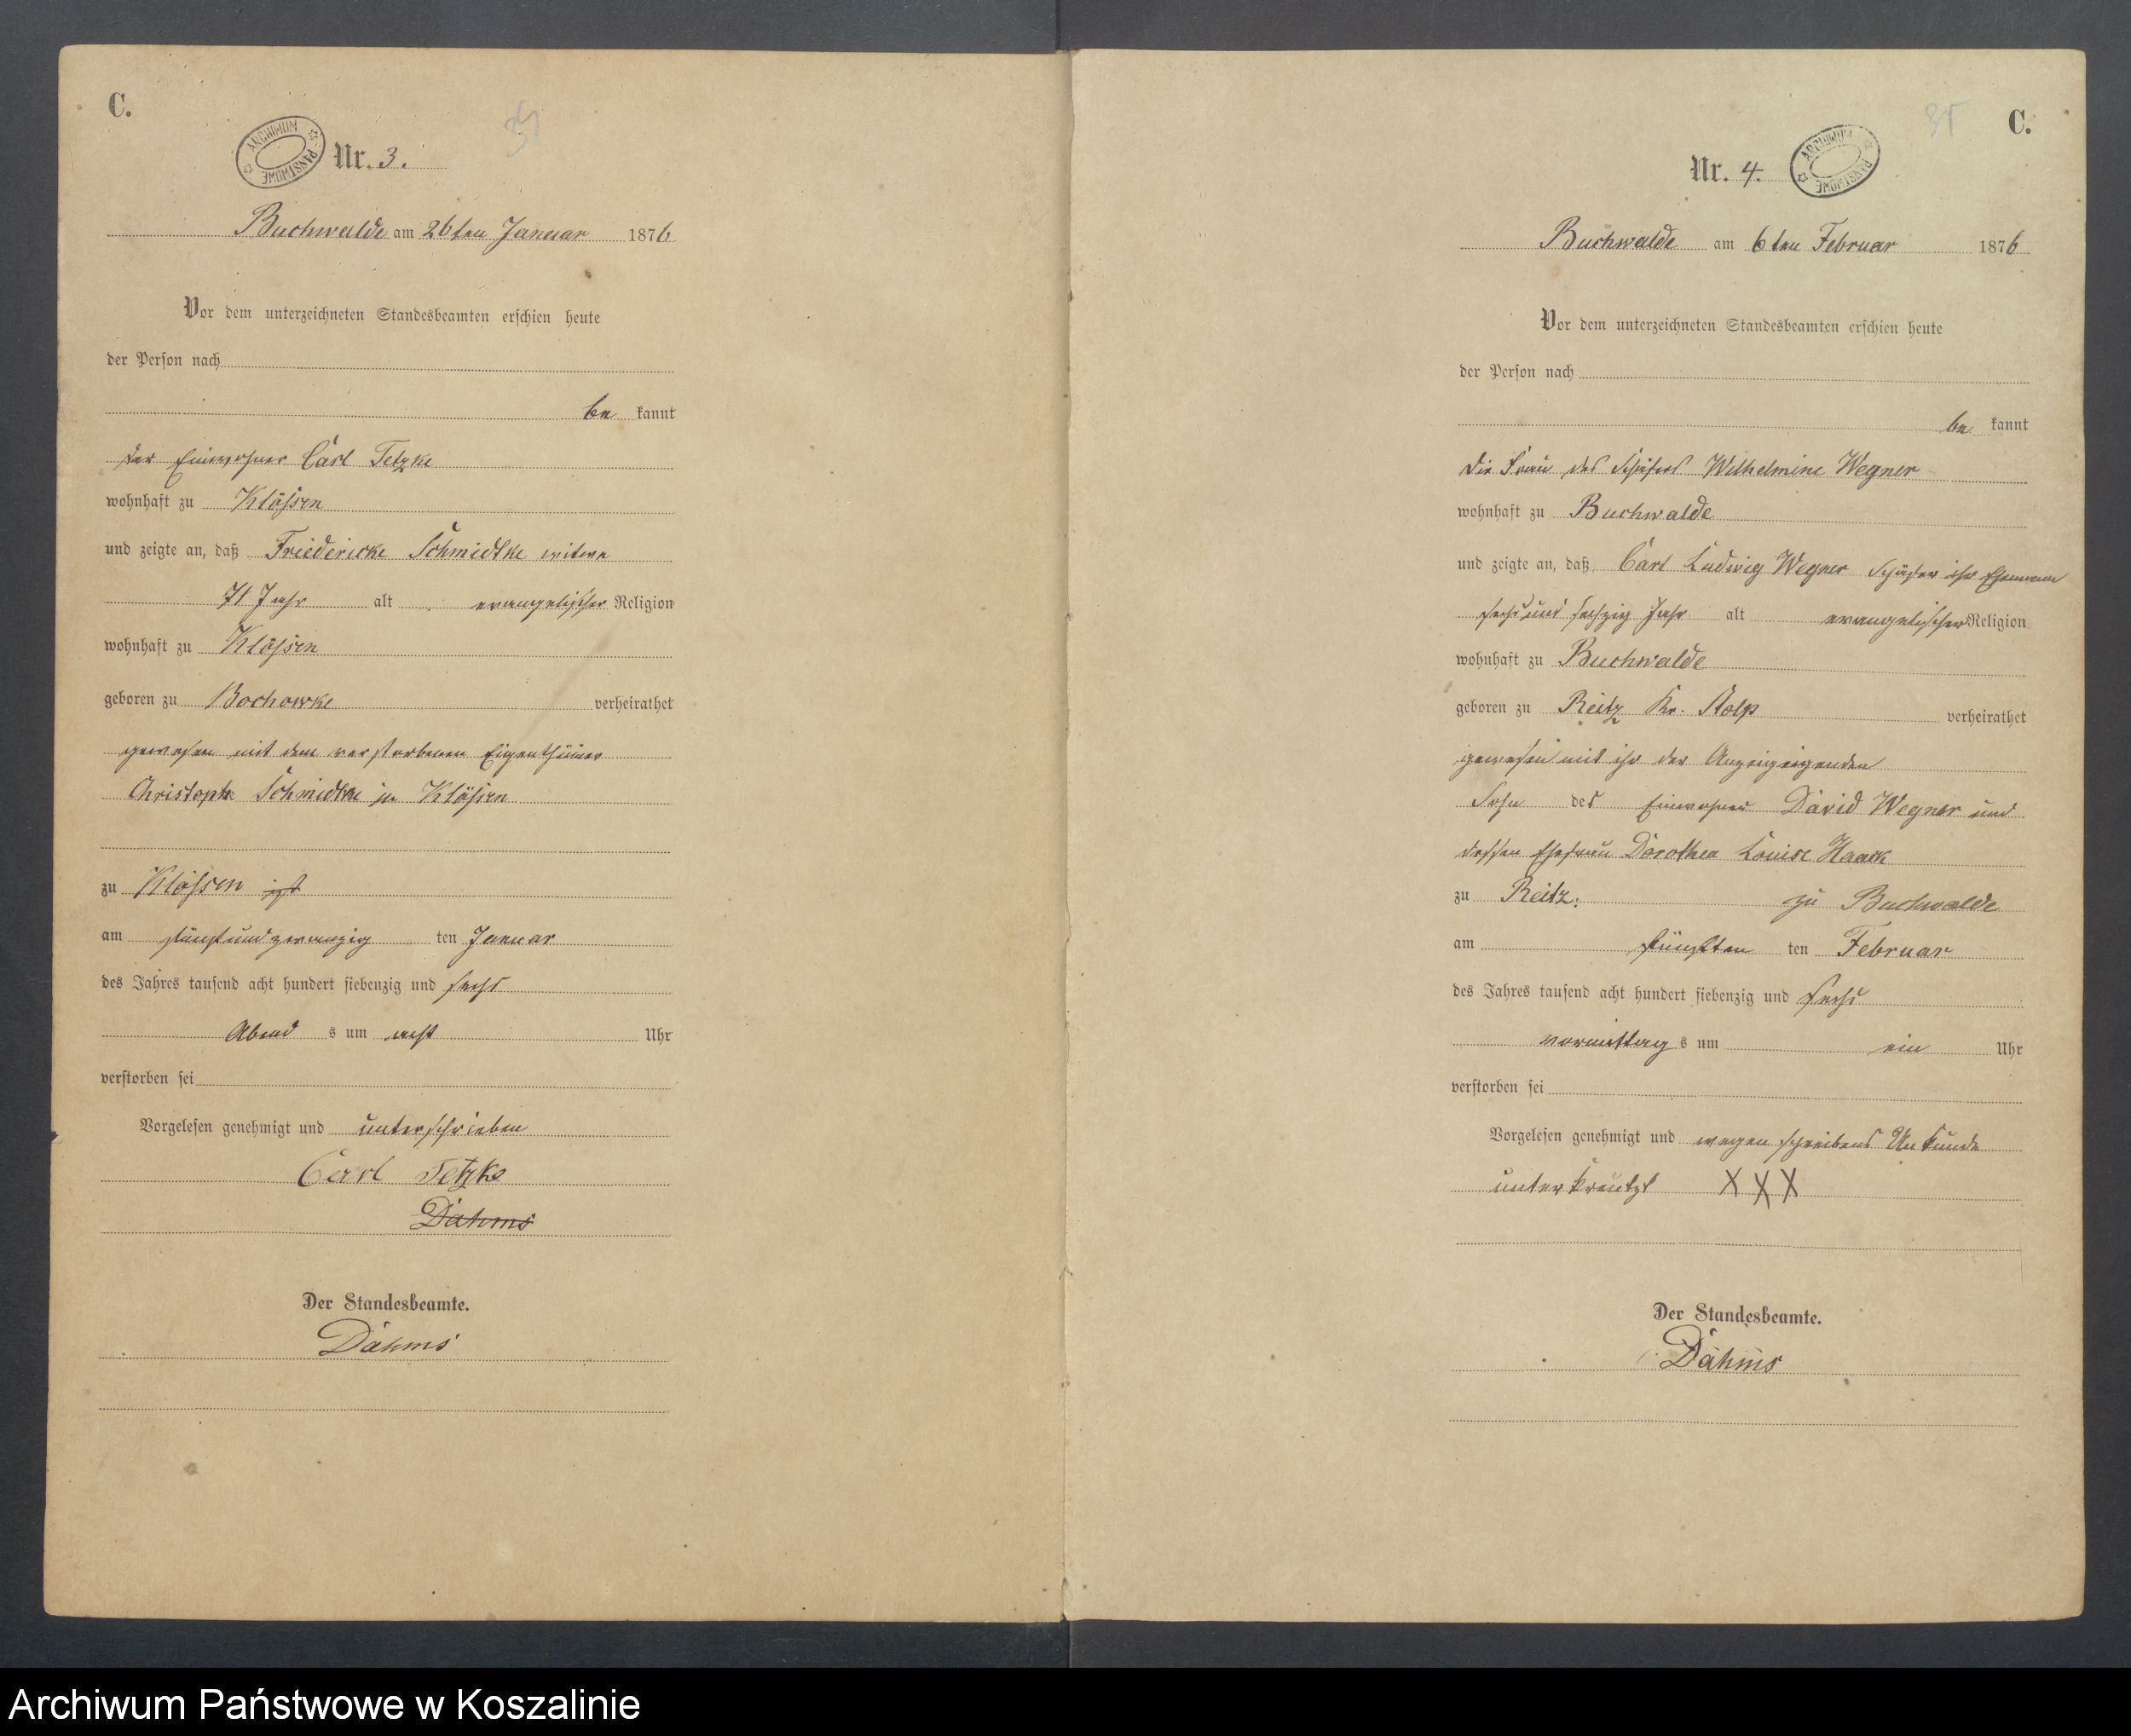 C.
34
ARCHIWUM PAŃSTWOWE
Nr. 3.
Buchwalde am 26ten Januar 1876
Vor dem unterzeichneten Standesbeamten erschien heute
der Person nach
be kannt
der Einwohner Carl Tetzke
wohnhaft zu Klössen
und zeigte an, daß Friedericke Schmidtke witwe
71 Jahr alt evangelischer Religion
wohnhaft zu Klössen
geboren zu Bochowke verheirathet
gewesen mit dem verstorbenen Eigenthümer
Christoph Schmidtke in Klössen
zu Klössen ist
am fünfundzwanzig ten Januar
des Jahres tausend acht hundert siebenzig und sechs
Abend s um acht Uhr
verstorben sei
Vorgelesen genehmigt und unterschrieben
Carl Tetzke
Dahms
Der Standesbeamte.
Dahms
35
C.
Nr. 4.
ARCHIWUM PAŃSTWOWE
Buchwalde am 6ten Februar 1876
Vor dem unterzeichneten Standesbeamten erschien heute
der Person nach
be kannt
die Frau des Schäfers Wilhelmine Wegner
wohnhaft zu Buchwalde
und zeigte an, daß Carl Ludwig Wegner Schäfer ihr Ehemann
sechs und sechzig Jahr alt evangelischer Religion
wohnhaft zu Buchwalde
geboren zu Reitz Kr. Stolp verheirathet
gewesen mit ihr der Anzeigeigenden
Sohn des Einwohner David Wegner und
dessen Ehefrau Dorothea Louise Haack
zu Reitz. zu Buchwalde
am fünften ten Februar
des Jahres tausend acht hundert siebenzig und sechs
vormittag s um ein Uhr
verstorben sei
Vorgelesen genehmigt und wegen schreibens Unkunde
unterkreutzt XXX
Der Standesbeamte.
Dahms
Archiwum Państwowe w Koszalinie